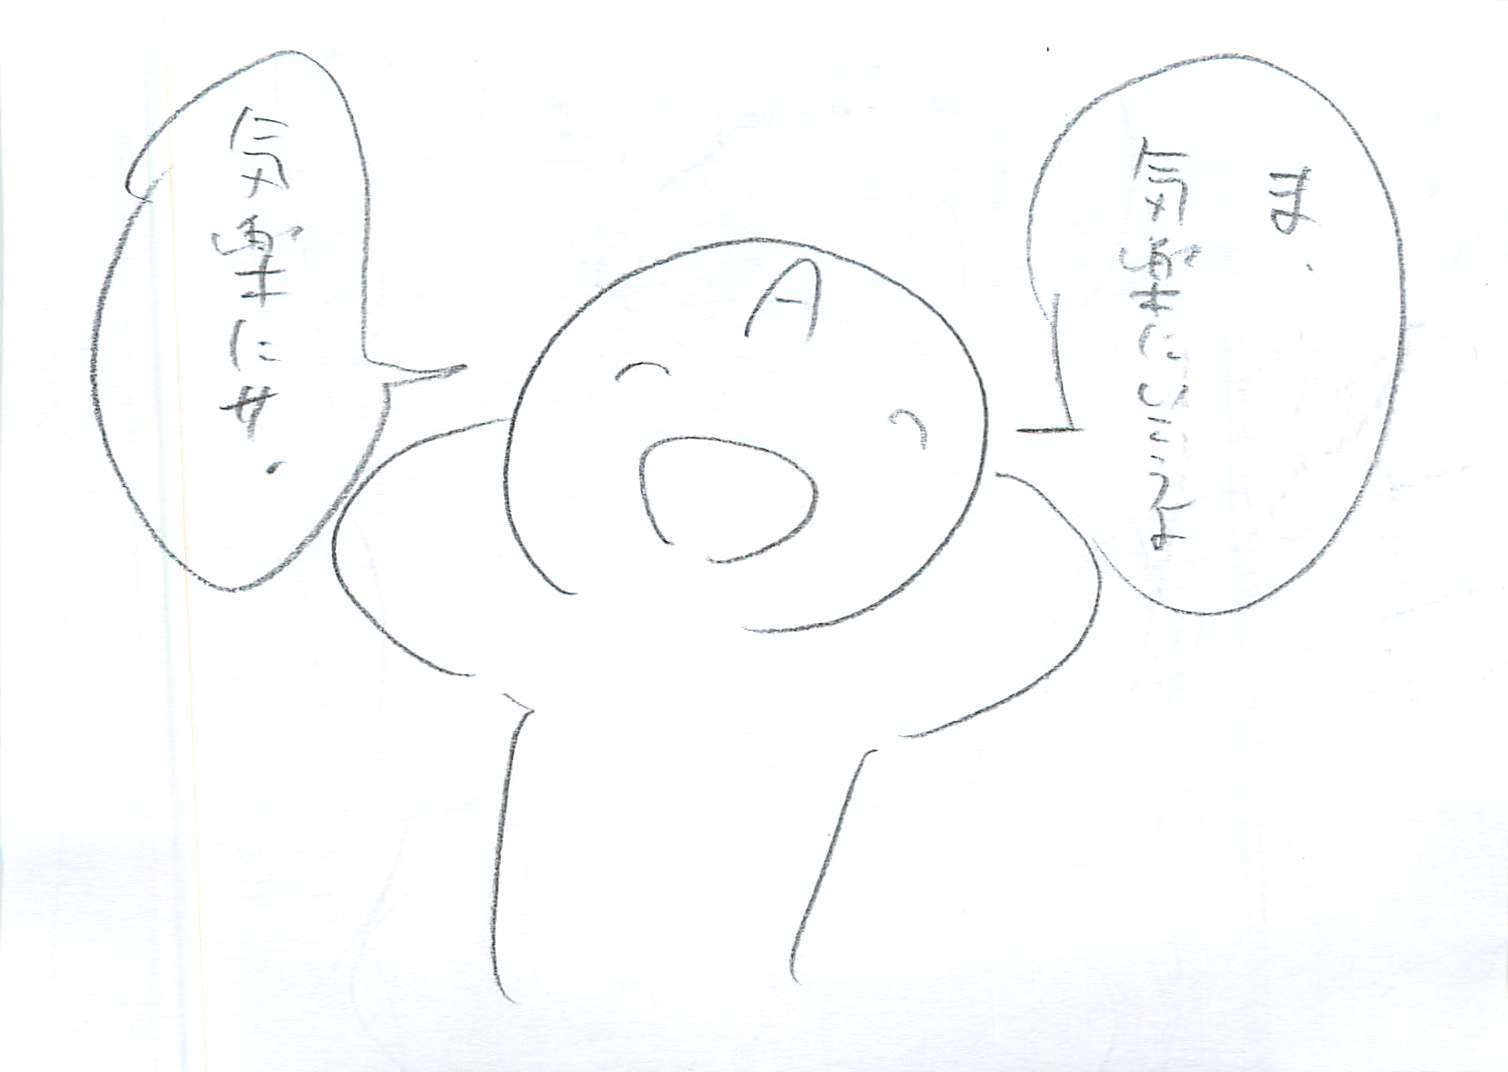 ま、
気楽にいこうよ
A
気楽にサ.